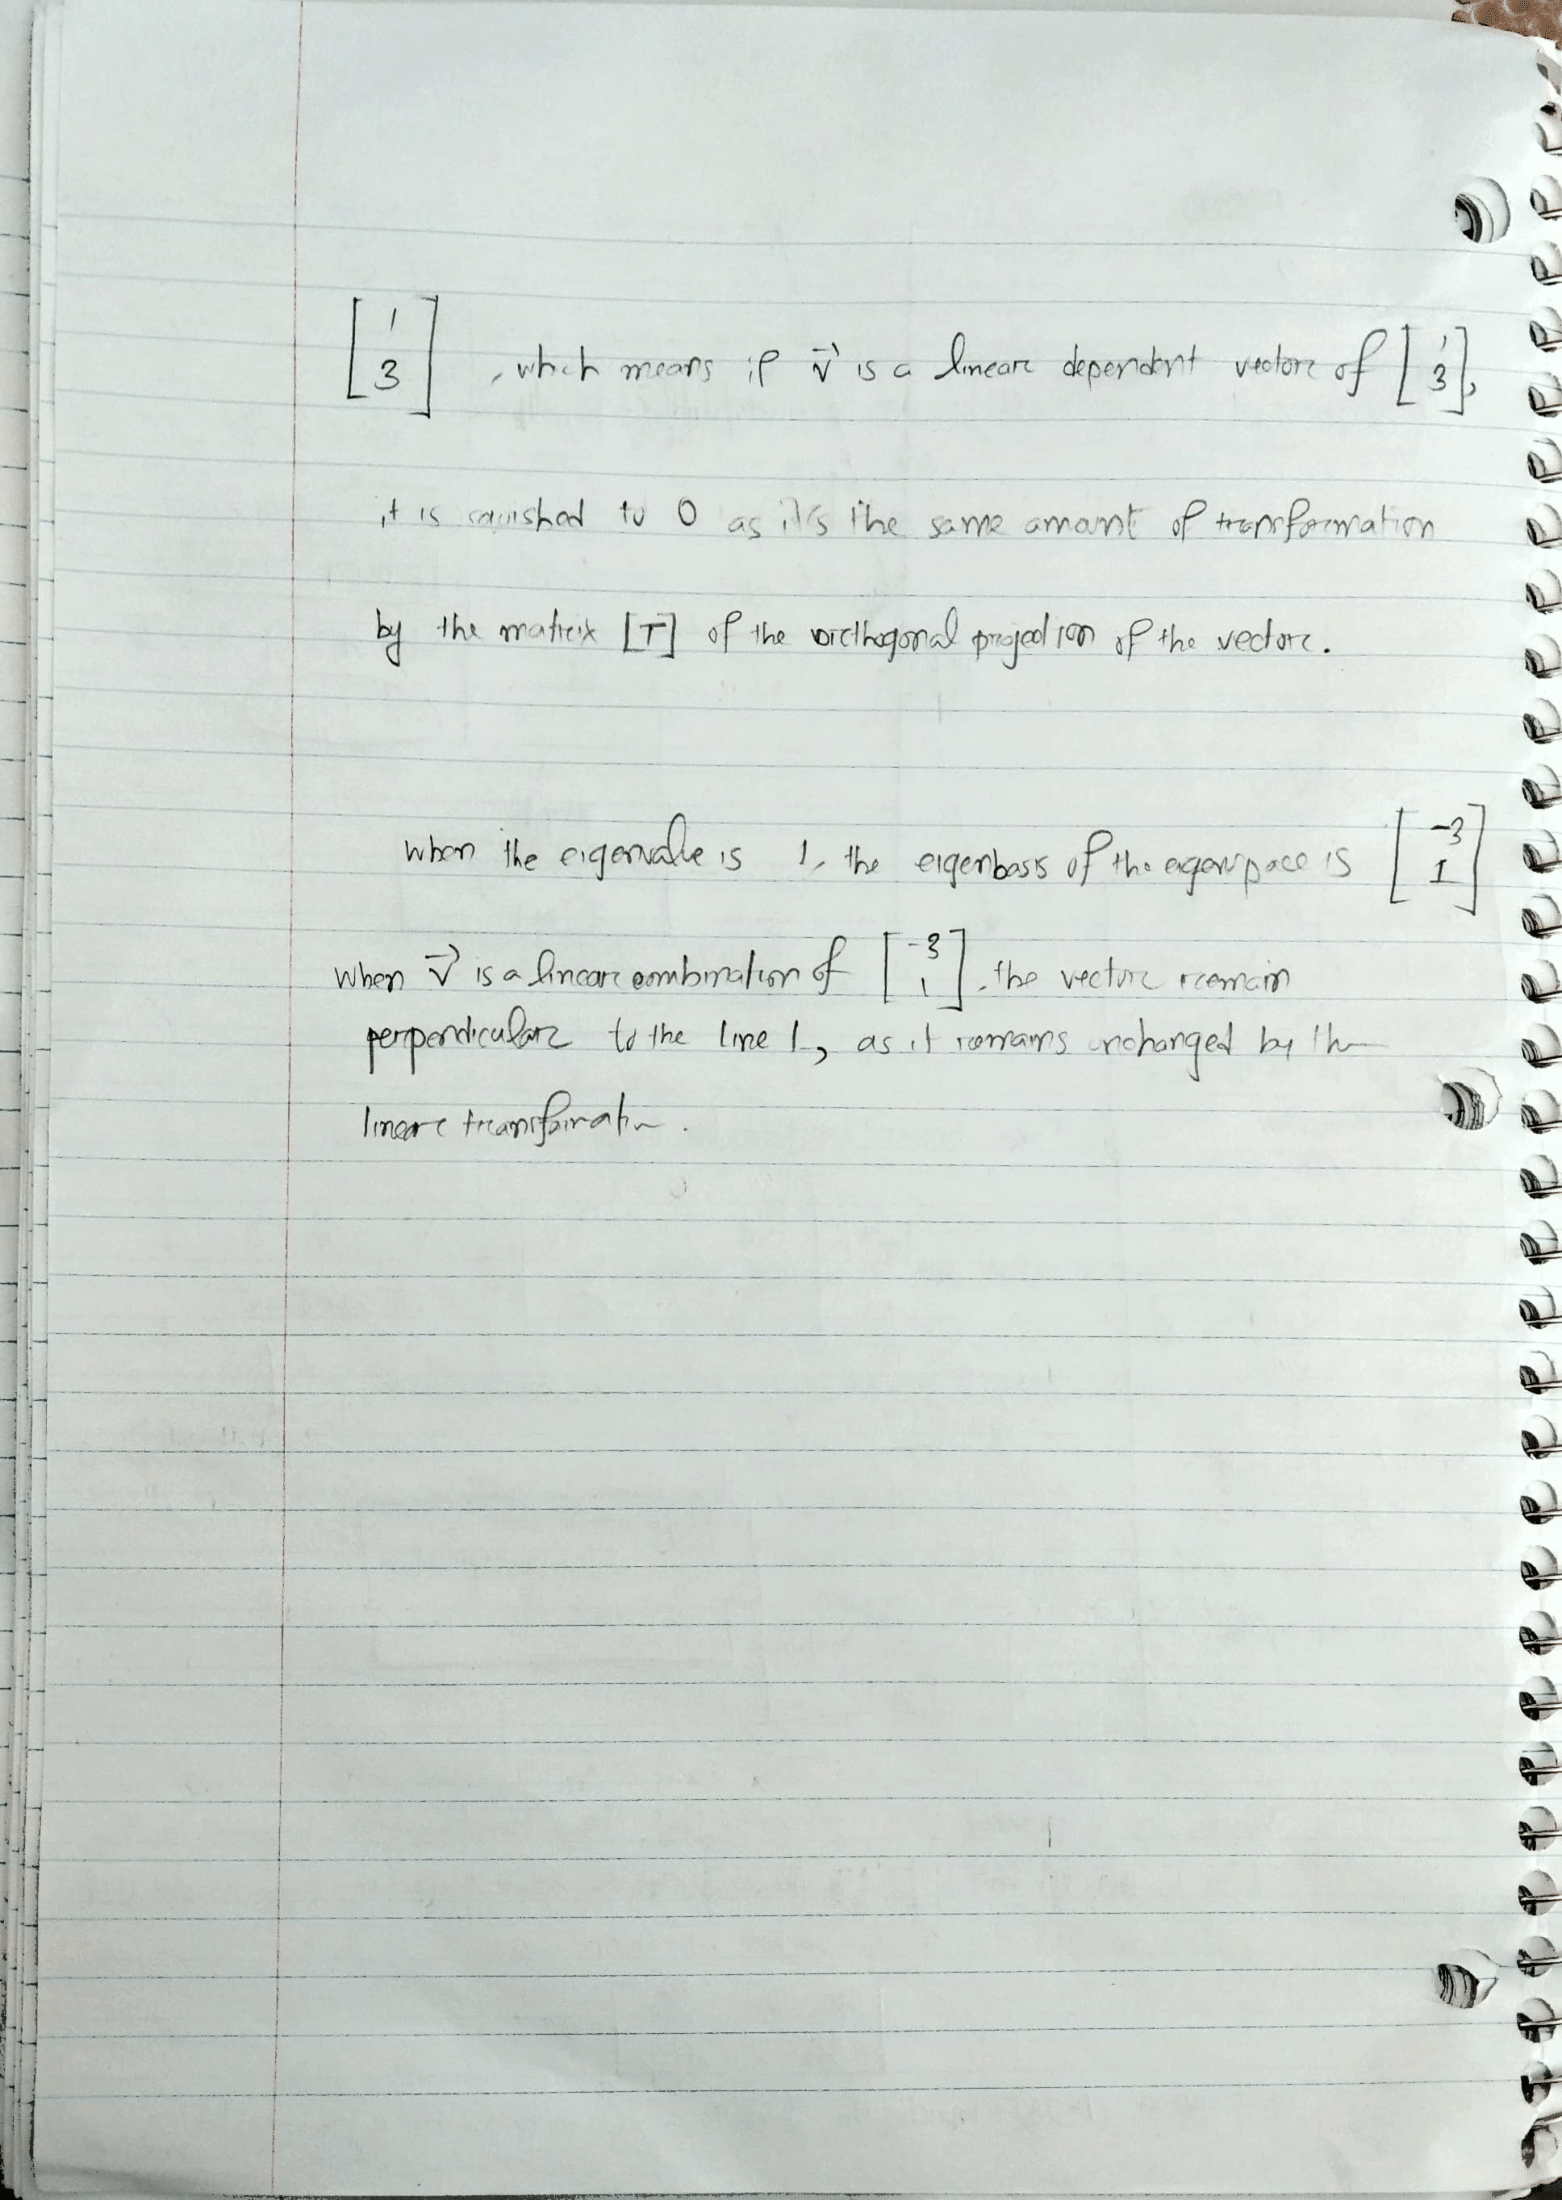 [1 3], which means if v⃗ is a linear dependent vector of [1 3],
it is squished to 0 as it's the same amount of transformation
by the matrix [T] of the orthogonal projection of the vector.
when the eigenvalue is 1, the eigenbasis of the eigenspace is [-3 1]
when v⃗ is a linear combination of [-3 1], the vector remain
perpendicular to the line L, as it remains unchanged by the
linear transformation.